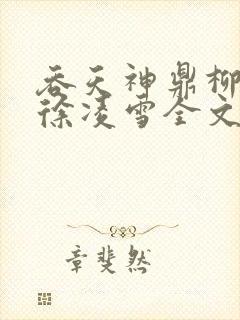 吞天神鼎柳
徐凌雪全文
章斐然